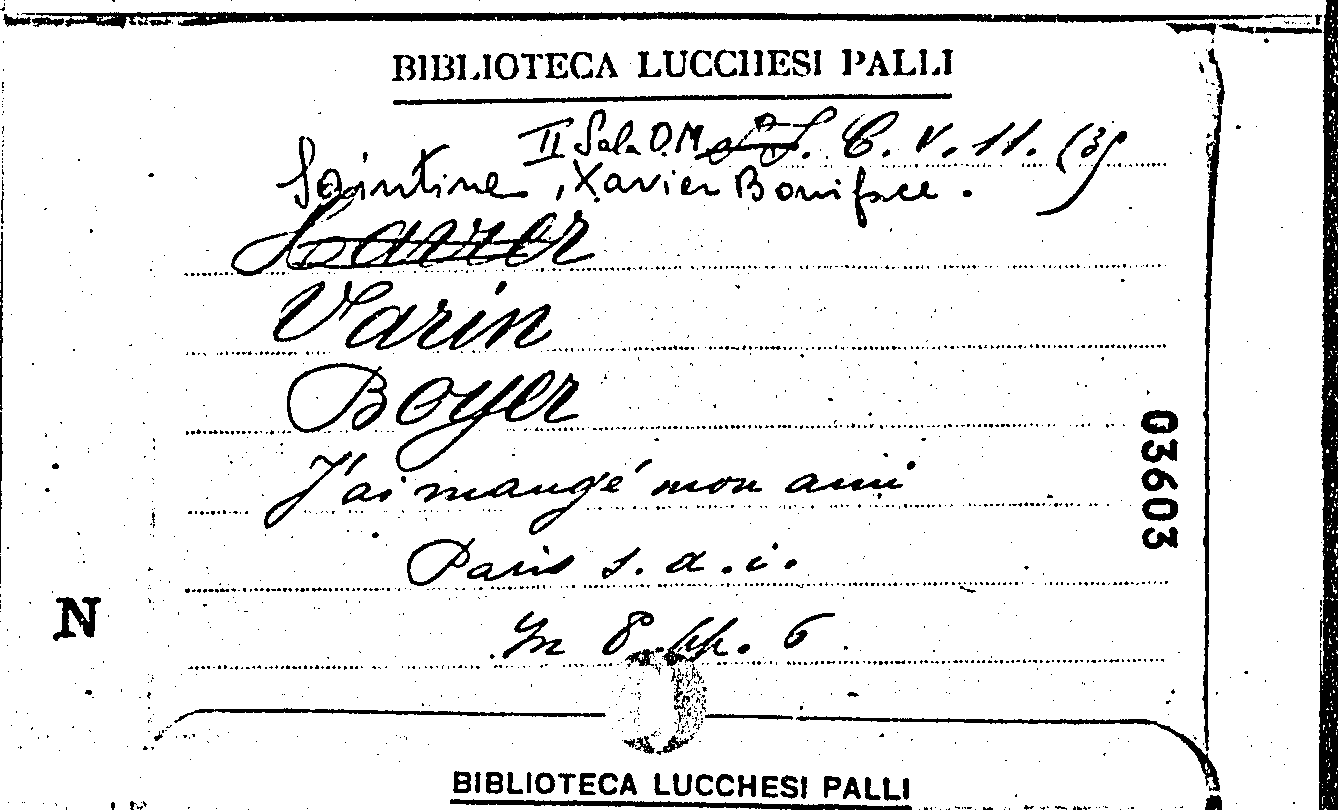 BIBLIOTECA LUCCHESI PALLI
II Sala O.M. C. V. 11. (3)
Saintine, Xavier Boniface.
Varin
Boyer
J'ai mangé mon ami
Paris s. a. i.
In 8 pp. 6
03603
N
BIBLIOTECA LUCCHESI PALLI